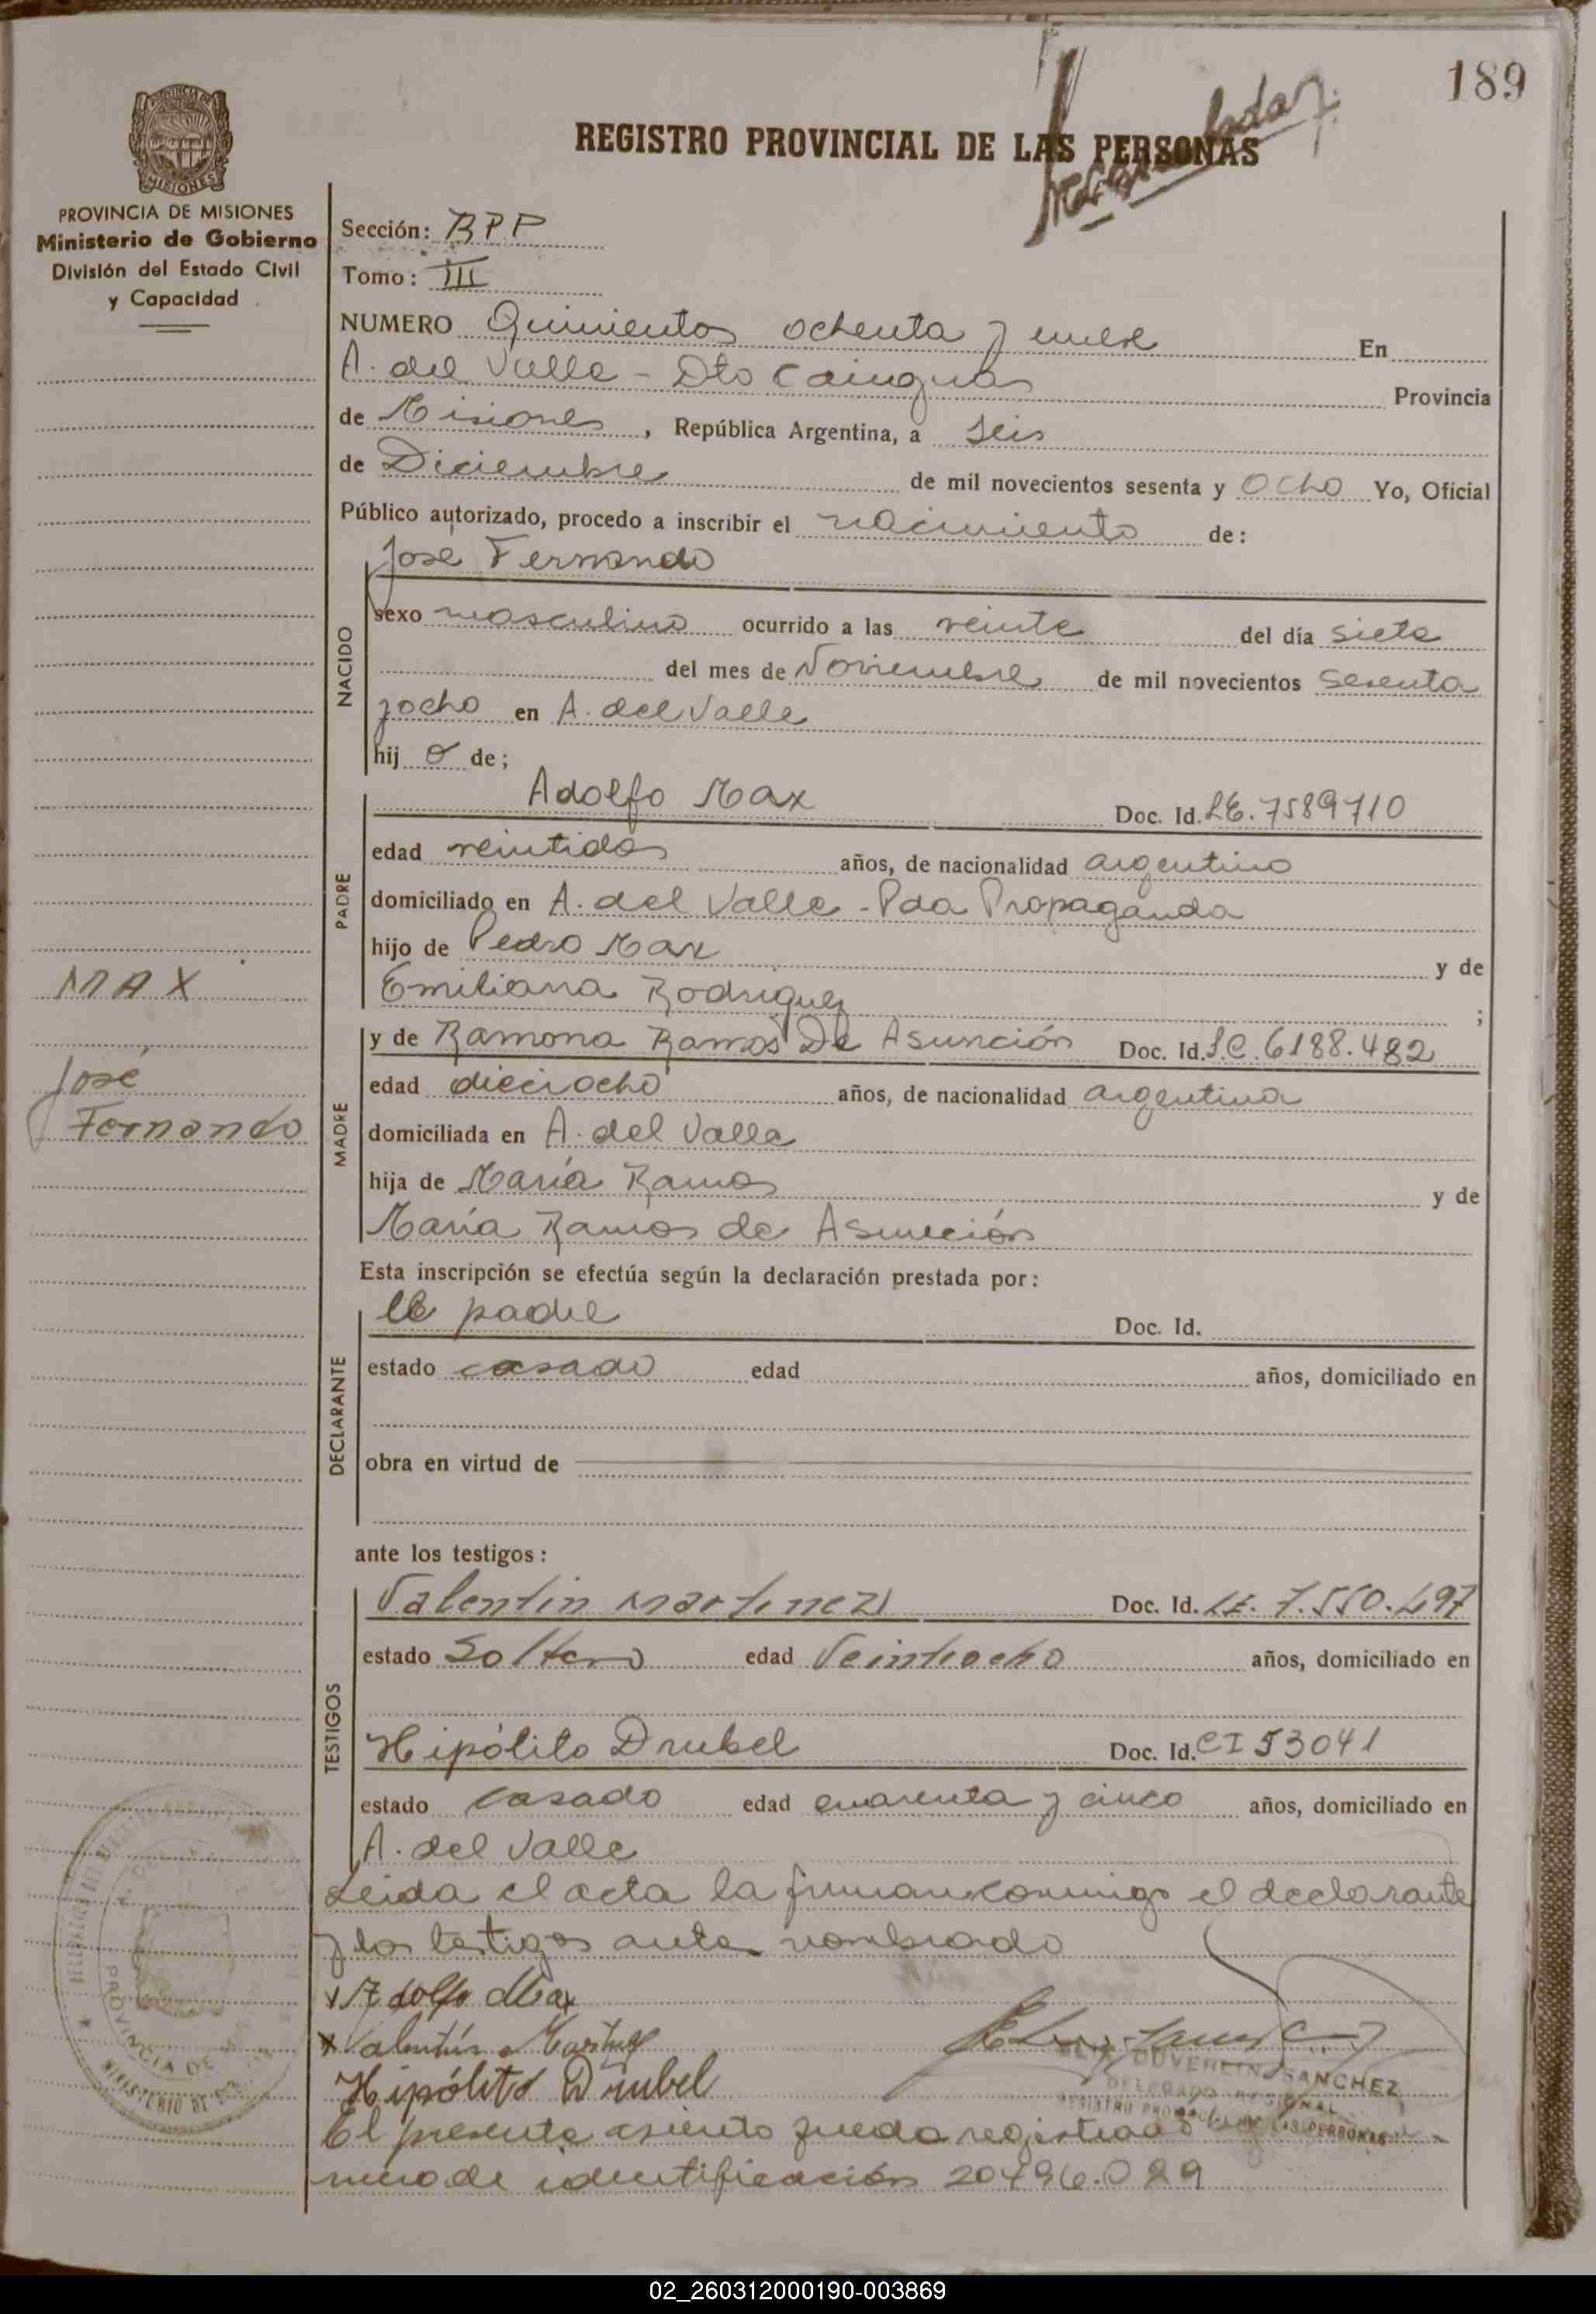 189
REGISTRO PROVINCIAL DE LAS PERSONAS
PROVINCIA DE MISIONES
Ministerio de Gobierno
División del Estado Civil
y Capacidad
Sección: BPP
Tomo: III
NUMERO Quinientos ochenta y nueve En
A. del Valle - Dto Cainguás Provincia
de Misiones, República Argentina, a seis
de Diciembre de mil novecientos sesenta y ocho Yo, Oficial
Público autorizado, procedo a inscribir el nacimiento de:
José Fernando
NACIDO
sexo masculino ocurrido a las veinte del día siete
del mes de Noviembre de mil novecientos sesenta
y ocho en A. del Valle
hij o de;
PADRE
Adolfo Max Doc. Id. LE. 7589710
edad veintidos años, de nacionalidad argentino
domiciliado en A. del Valle - Pda Propaganda
hijo de Pedro Max y de
Emiliana Rodriguez ;
MAX
José
Fernando
MADRE
y de Ramona Ramos De Asunción Doc. Id. LC. 6188.482
edad dieciocho años, de nacionalidad argentina
domiciliada en A. del Valle
hija de María Ramos y de
María Ramos de Asunción
Esta inscripción se efectúa según la declaración prestada por:
DECLARANTE
el padre Doc. Id.
estado casado edad años, domiciliado en
obra en virtud de
ante los testigos:
TESTIGOS
Valentin Martinez Doc. Id. LE. 7.550.497
estado Soltero edad Veintiocho años, domiciliado en
Hipólito Drubel Doc. Id. CI 53041
estado casado edad cuarenta y cinco años, domiciliado en
A. del Valle
Leida el acta la firman conmigo el declarante
y los testigos antes nombrado
x Adolfo Max
x Valentín Martinez
Hipólito Drubel
SANCHEZ
El presente asiento queda registrado
mero de identificación 20496.029
02_260312000190-003869